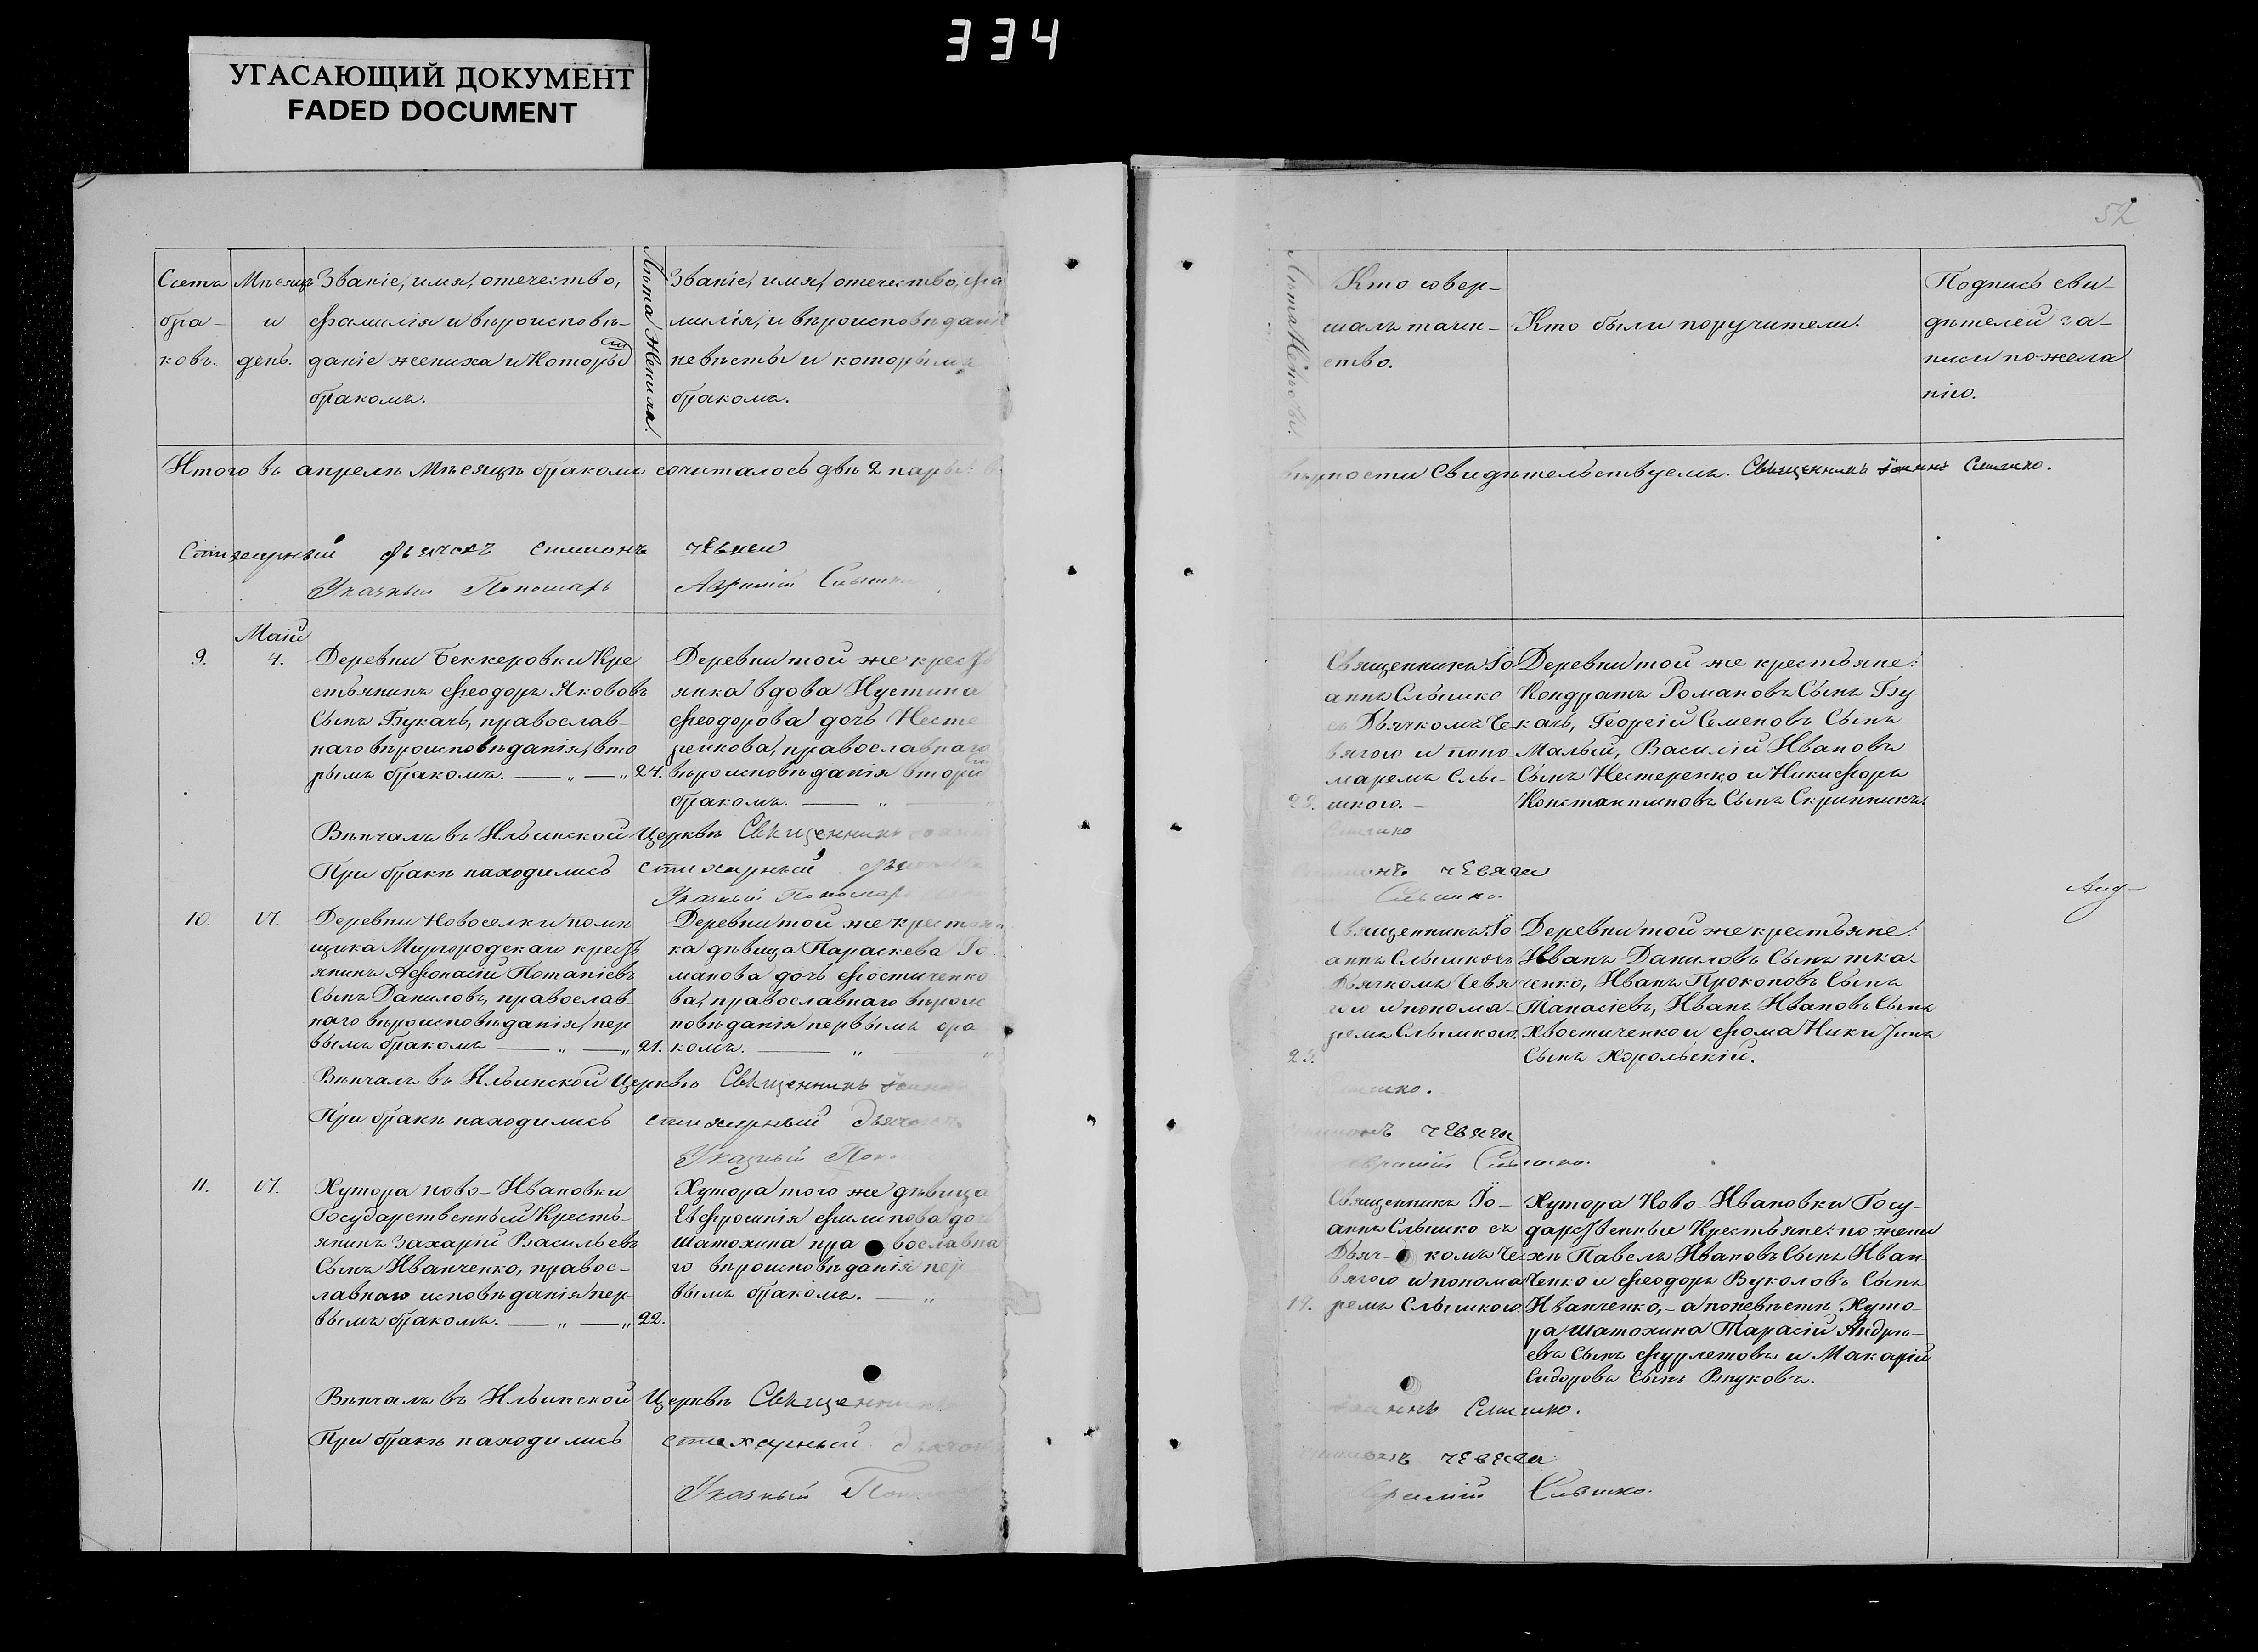 334
УГАСАЮЩИЙ ДОКУМЕНТ
FADED DOCUMENT
52
Счетъ
бра-
ковъ.
Мѣсяцъ
и
день.
Званіе, имя, отечество,
фамилія и вѣроисповѣ-
даніе жениха и Которы
мъ
бракомъ.
Лѣта Жениха.
Званіе, имя, отечество, фа
милія, и вѣроисповѣданіе
невѣсты и которымъ
бракомъ.
Лѣта Невѣсты.
Кто совер-
шалъ таин-
ство.
Кто были поручители.
Подпись сви-
дѣтелей за-
писи по жела
нію.
Итого въ апрелѣ Мѣсяцѣ бракомъ сочиталось двѣ 2 пары: въ
вѣрности Свидѣтельствуемъ. Священникъ Іоаннъ Слышко.
Стихарный Дьячокъ Симионъ
Указный Пономарь
9.
Маій
4.
Деревни Беккеровки Кре
стьянинъ Феодоръ Якововъ
Сынъ Букачъ, православ-
наго вѣроисповѣданія, вто
рымъ бракомъ. — „ — „
24.
Деревни той же кресть
янка вдова Иустина
Феодорова дочь Несте
ренкова, православнаго
вѣроисповѣданія вторы
бракомъ. — „
Священникъ Іо
аннъ Слышко
съ Дьячкомъ Че
вягою и поно
маремъ Слы-
шкою.
Деревни той же крестьяне:
Кондратъ Романовъ Сынъ Бу-
качъ, Георгій Семеновъ Сынъ
Малый, Василій Ивановъ
Сынъ Нестеренко и Никифоръ
Константиновъ Сынъ Скрипникъ.
Вѣнчалъ въ Ильинской Церквѣ Священникъ
При бракѣ находились стихарный
Указный Пономарь
Слышко.
10.
Деревни Новоселки помѣ
щика Миргородскаго кресть
янинъ Афонасій Потапіевъ
Сынъ Даниловъ, православ-
наго вѣроисповѣданія, пер
вымъ бракомъ — „ — „
21.
Деревни той же крестьян
ка дѣвица Параскева Ро
манова дочь Фостиченко
ва, православнаго вѣроис
повѣданія первымъ бра
комъ. — „
Священникъ Іо
аннъ Слышко съ
Дьячкомъ Чевя
гою и понома-
ремъ Слышкою.
Деревни той же крестьяне:
Иванъ Даниловъ Сынъ тка-
ченко, Иванъ Прокоповъ Сынъ
Танасіевъ, Иванъ Ивановъ Сынъ
Хвостиченко и Фома Никитинъ
Сынъ Хорольскій.
Вѣнчалъ въ Ильинской Церквѣ Священникъ
При бракѣ находились стихарный Дьячокъ
Указный
Слышко.
11.
Хутора ново-Ивановки
Государственный Кресть-
янинъ Захарій Васильевъ
Сынъ Иванченко, правос-
лавнаго исповѣданія пер-
вымъ бракомъ. — „ — „
22.
Хутора того же дѣвица
Евфросинія Филипова доч
Шатохина православна
го вѣроисповѣданія пер
вымъ бракомъ. — „
19.
Священникъ Іо-
аннъ Слышко съ
Дьяч-комъ Че
вягою и понома
ремъ Слышкою.
Хутора Ново-Ивановки Госу-
дарственные Крестьяне: по жени
хѣ Павелъ Ивановъ Сынъ Иван-
ченко и Феодоръ Вуколовъ Сынъ
Иванченко, - а по невѣстѣ Хуто-
ра Шатохина Тарасій Андрѣ-
евъ Сынъ Фурлетовъ и Макарій
Сидоровъ Сынъ Внуковъ.
Вѣнчалъ въ Ильинской Церквѣ Священникъ
Іоаннъ Слышко.
При бракѣ находились стихарный
Указный
Слышко.